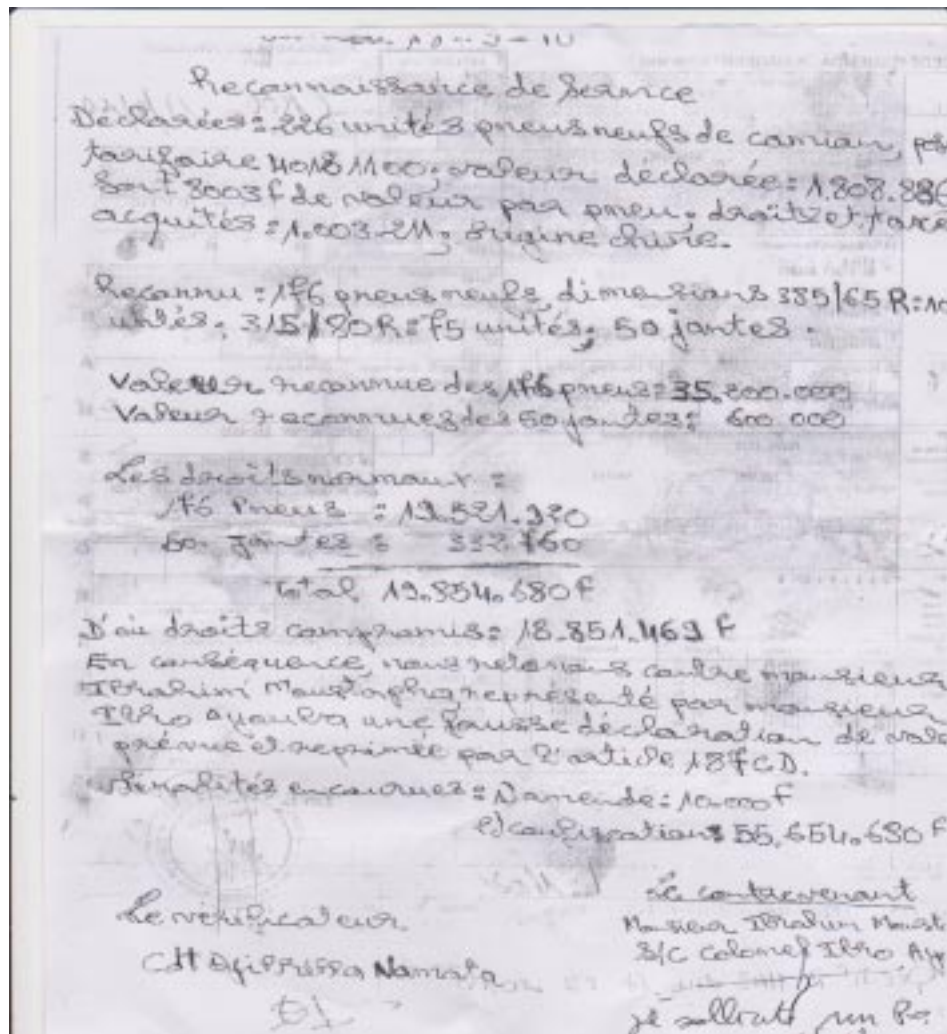 Reconnaissance de Service
Déclarées: 226 unités pneus neufs de camion, pos
tarifaire 40131100; valeur déclarée: 1.808.880
Soit 8003f de valeur par pneu; droits et taxe
acquités: 1.003.211; origine chine.
Reconnu: 176 pneus neufs, dimensions 385/65 R: 10
unités; 315/80R: 75 unités; 50 jantes.
Valeur reconnue des 176 pneus: 35.200.000
Valeur reconnues des 50 jantes: 600.000
Les droits normaux:
176 Pneus : 19.521.920
50 jantes : 332.760
Total 19.854.680 f
D'où droits compromis: 18.851.469 F
En conséquence, nous retenons contre monsieur
Ibrahim Moustapha représenté par monsieur
Ibro Ayouba une fausse déclaration de vale
prévue et reprimée par l'article 187 C.D.
Pénalités encourues: 1) amende: 10.000 f
2) confiscation: 55.654.680 F
Le vérificateur
Le contrevenant
Monsieur Ibrahim Moust
S/C Colonel Ibro Ay
Cdt Namata
je sollicite un Re